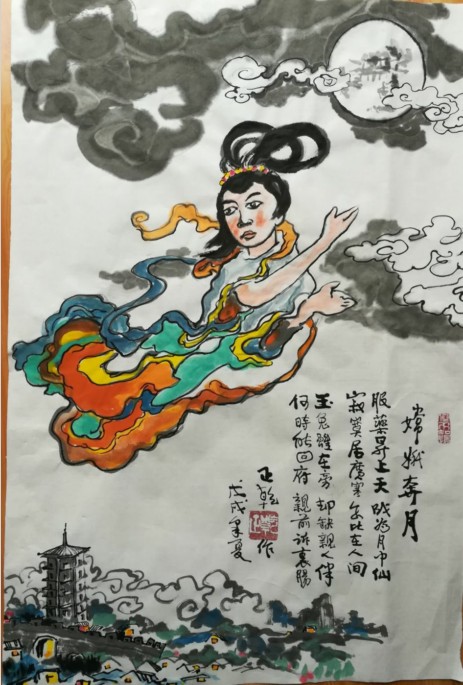 嫦娥奔月
服藥昇上天 成为月中仙
寂寞居廣寒 怎比在人间
玉兔雖在旁 却缺親人伴
何時能回府 親前诉衷腸
正乾作
戊戌年夏